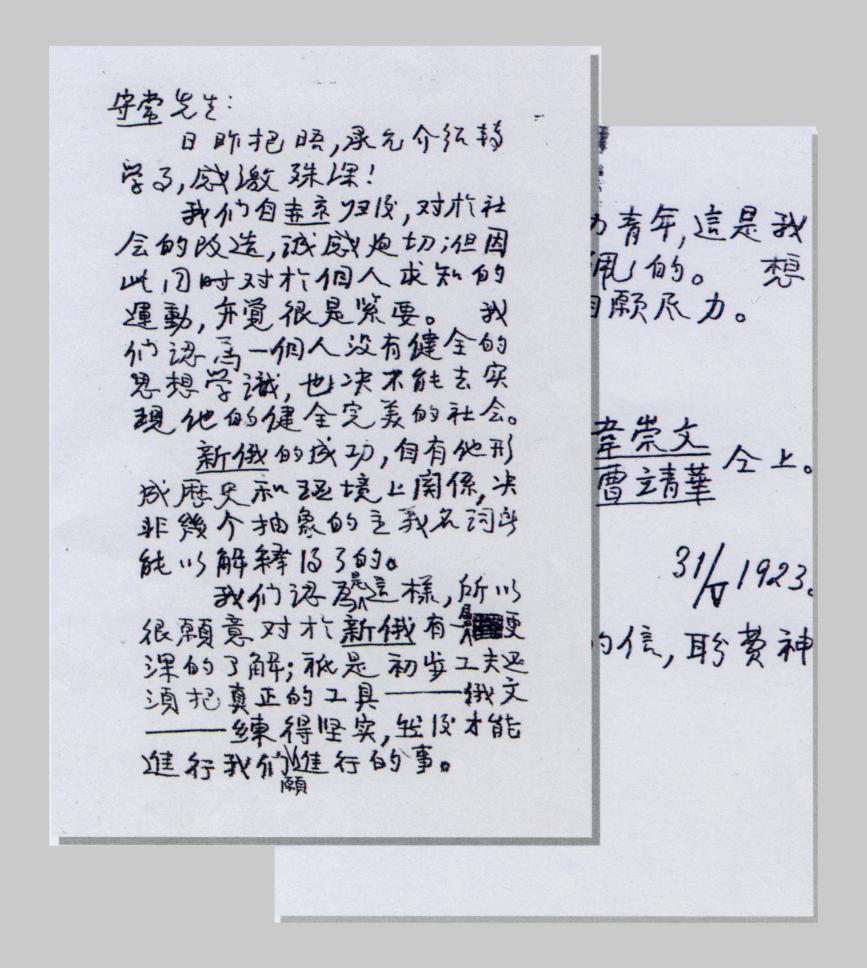 守常先生:
日昨把晤,承允介紹轉
学事,感激殊深!
我们自赤京归後,对於社
会的改造,诚感炮切;但因
此同时对於個人求知的
運動,亦覺很是紧要。 我
们認為一個人没有健全的
思想学識,也决不能去实
現他的健全完美的社会。
新俄的成功,自有他形
成歷史和环境上関係,决
非幾个抽象的主義名词所
能以解释得了的。
我们認為是這樣,所以
很願意对於新俄有更
深的了解;祇是初步工夫还
須把真正的工具——俄文
——練得坚实,然後才能
進行我们所願進行的事。
青年,這是我
佩的。 想
自願尽力。
韋崇文
曹靖華 仝上。
31/V 1923.
的信,聆費神